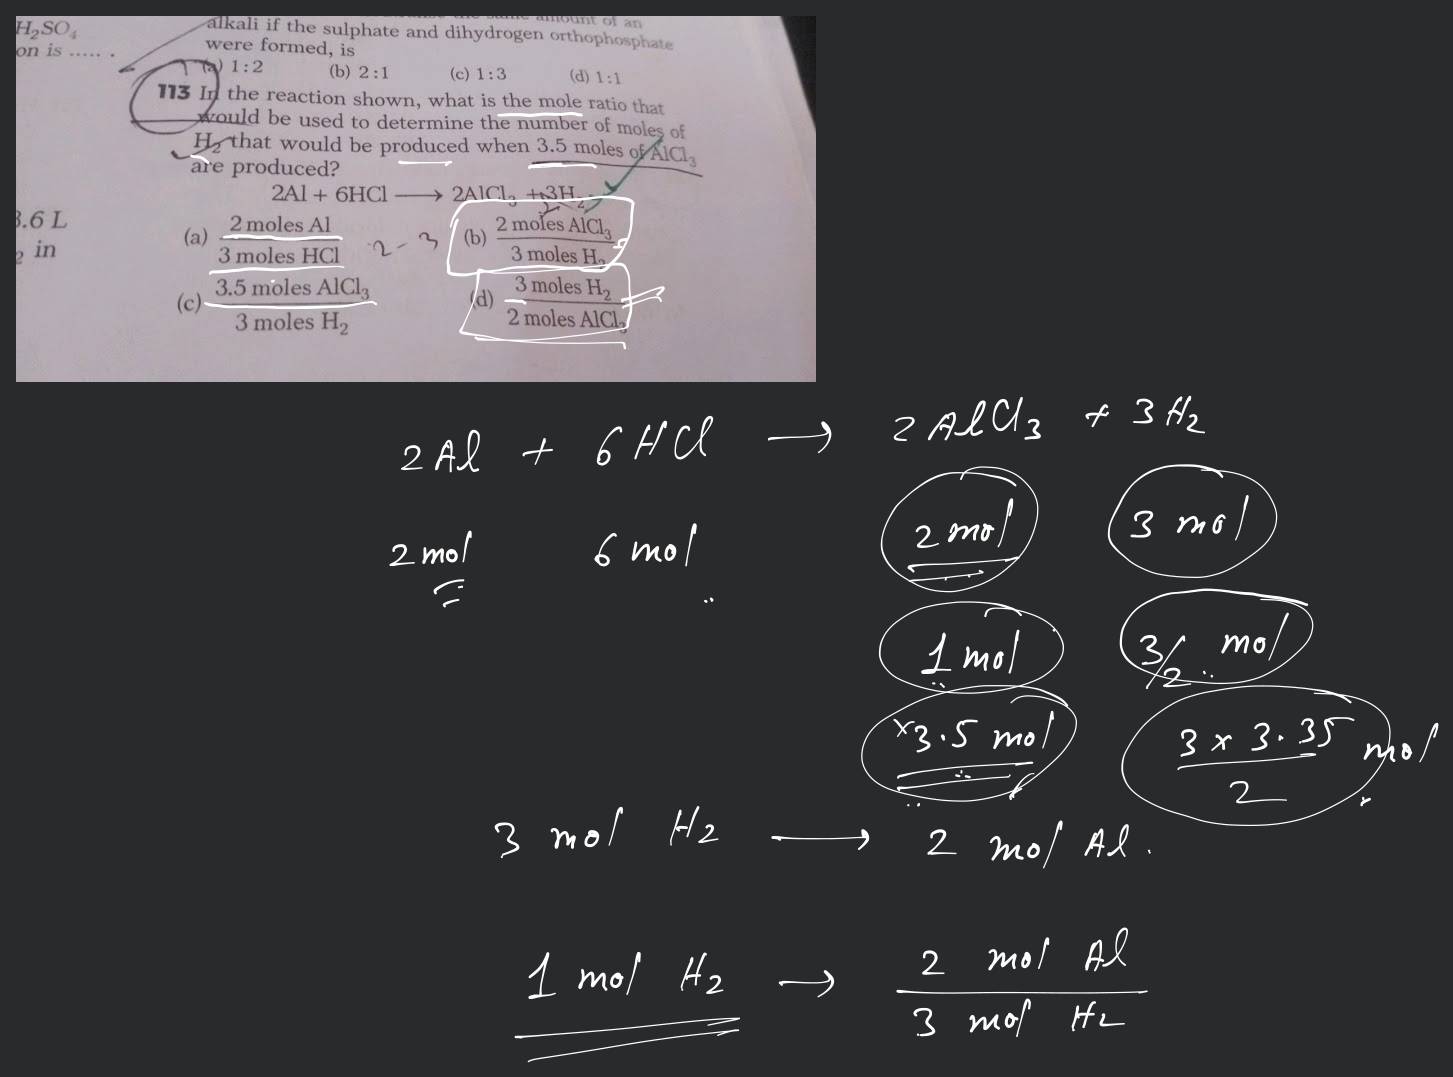 H₂SO₄
on is ..... .
3.6 L
₂ in
amount of an
alkali if the sulphate and dihydrogen orthophosphate
were formed, is
(a) 1:2 (b) 2:1 (c) 1:3 (d) 1:1
113 In the reaction shown, what is the mole ratio that
would be used to determine the number of moles of
H₂ that would be produced when 3.5 moles of AlCl₃
are produced?
2Al + 6HCl ⟶ 2AlCl₃ + 3H₂
(a) 2 moles Al / 3 moles HCl 2 - 3 (b) 2 moles AlCl₃ / 3 moles H₂
(c) 3.5 moles AlCl₃ / 3 moles H₂ (d) 3 moles H₂ / 2 moles AlCl₃
2Al + 6HCl → 2AlCl₃ + 3H₂
2 mol 6 mol 2 mol 3 mol
1 mol 3/2 mol
×3.5 mol 3 × 3.35 / 2 mol
3 mol H₂ → 2 mol Al.
1 mol H₂ → 2 mol Al / 3 mol H₂